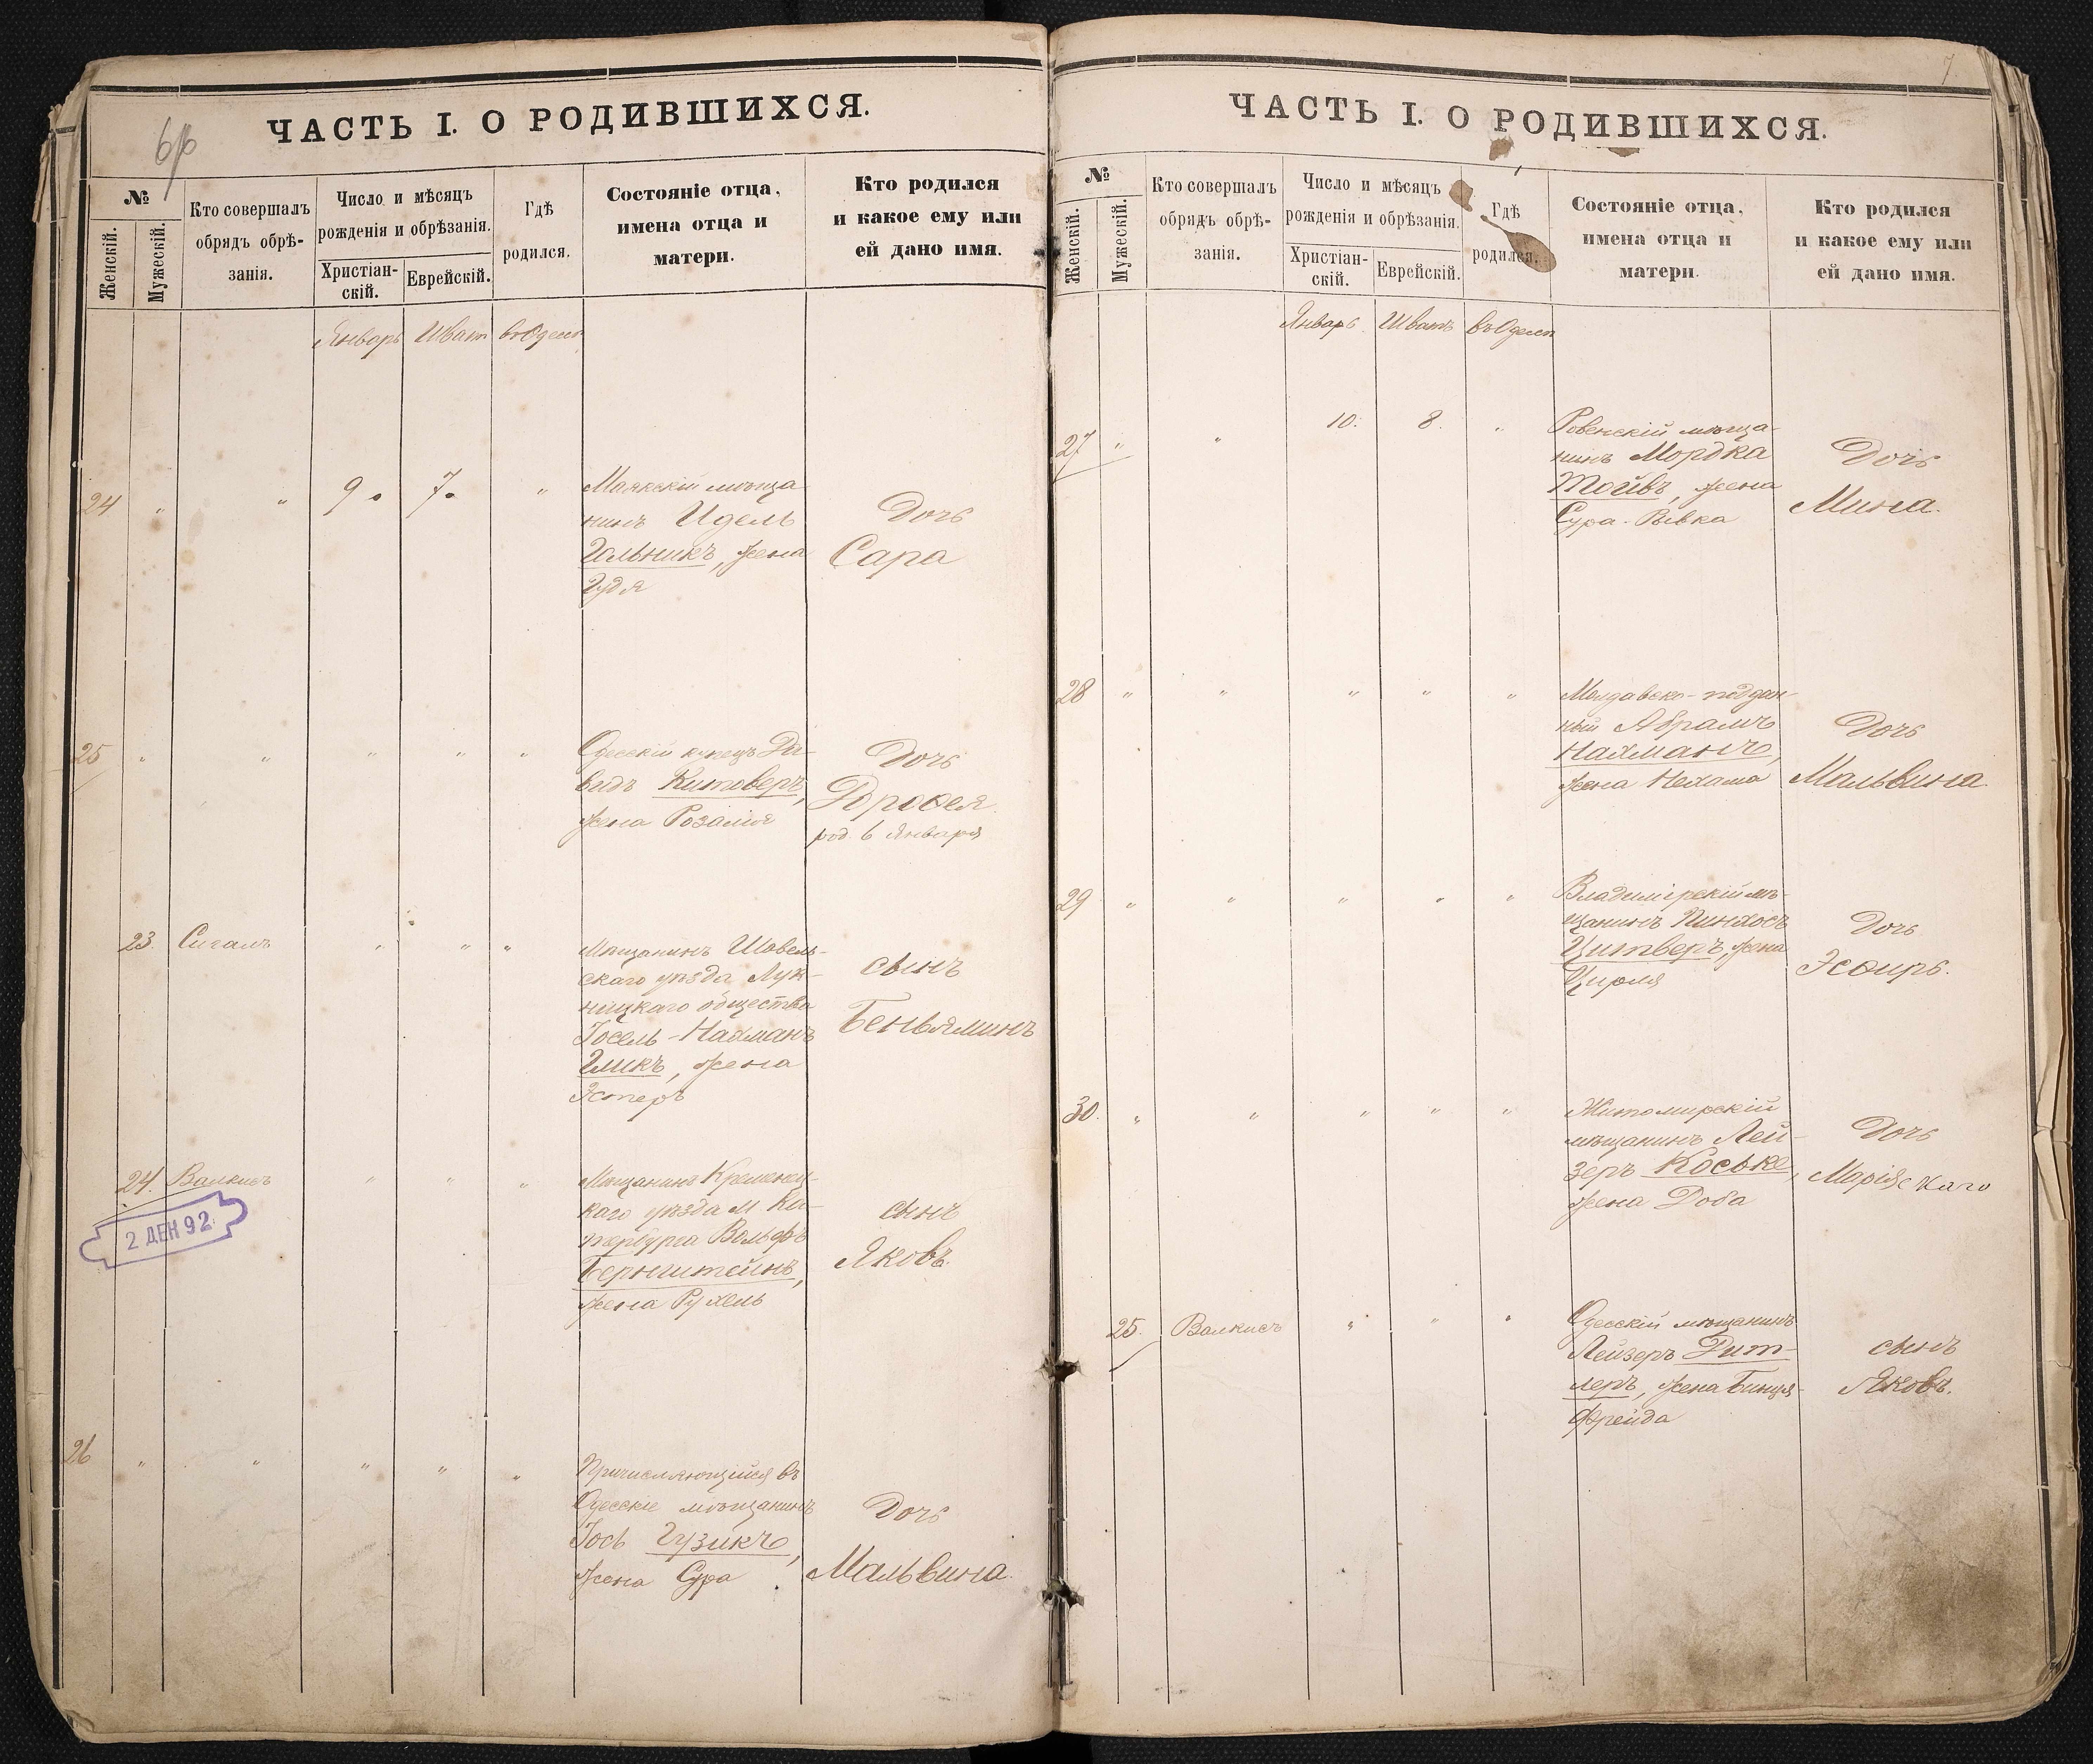 ЧАСТЬ I. О РОДИВШИХСЯ.
№
Женскій.
Мужескій.
Кто совершалъ
обрядъ обрѣ-
занія.
Число и мѣсяцъ
рожденія и обрѣзанія.
Христіан-
скій.
Еврейскій.
Гдѣ
родился.
Состояніе отца,
имена отца и
матери.
Кто родился
и какое ему или
ей дано имя.
Январь Шват въ Одессѣ
24 " " 9. 7. "
Маякскій мѣща-
нинъ Идель
Гольникъ, жена
Гудя
Дочь
Сара
25 " " " " "
Одесскій купецъ Да-
видъ Китоверъ,
жена Розалія
Дочь
Дорофея
род. 6 Января
23. Сигалъ " " "
Мѣщанинъ Шавель-
скаго уѣзда, Лук-
ницкаго общества
Іосель-Нахманъ
Гликъ, жена
Эстеръ
сынъ
Беньяминъ
24. Валкисъ " " "
Мѣщанинъ Кременец-
каго уѣзда м. Ка-
тербурга Вольфъ
Бернштейнъ,
жена Рухель
сынъ
Яковъ.
2 ДЕН 92
26 " " " " "
Причисляющійся въ
Одесскіе мѣщанинъ
Іось Гузикъ,
жена Сура
Дочь
Мальвина.
7
ЧАСТЬ I. О РОДИВШИХСЯ.
№
Женскій.
Мужескій.
Кто совершалъ
обрядъ обрѣ-
занія.
Число и мѣсяцъ
рожденія и обрѣзанія.
Христіан-
скій.
Еврейскій.
Гдѣ
родился.
Состояніе отца,
имена отца и
матери.
Кто родился
и какое ему или
ей дано имя.
Январь Шватъ въ Одессѣ
27 " " 10. 8. "
Ровенскій мѣща-
нинъ Мордка
Тойвъ, жена
Сура-Ривка
Дочь
Мина.
28 " " " " "
Молдавско-поддан-
ный Абрамъ
Нахманъ,
жена Нехама
Дочь
Мальвина.
29 " " " " "
Владимірскій мѣ-
щанинъ Пинхосъ
Цитверъ, жена
Цирля
Дочь
Эсфирь.
30. " " " " "
Житомирскій
мѣщанинъ Лей-
зеръ Коське,
жена Доба
Дочь
Марія
25. Валкисъ " " "
Одесскій мѣщанинъ
Лейзеръ Дит-
леръ, жена Бинця-
Фрейда
сынъ
Яковъ.